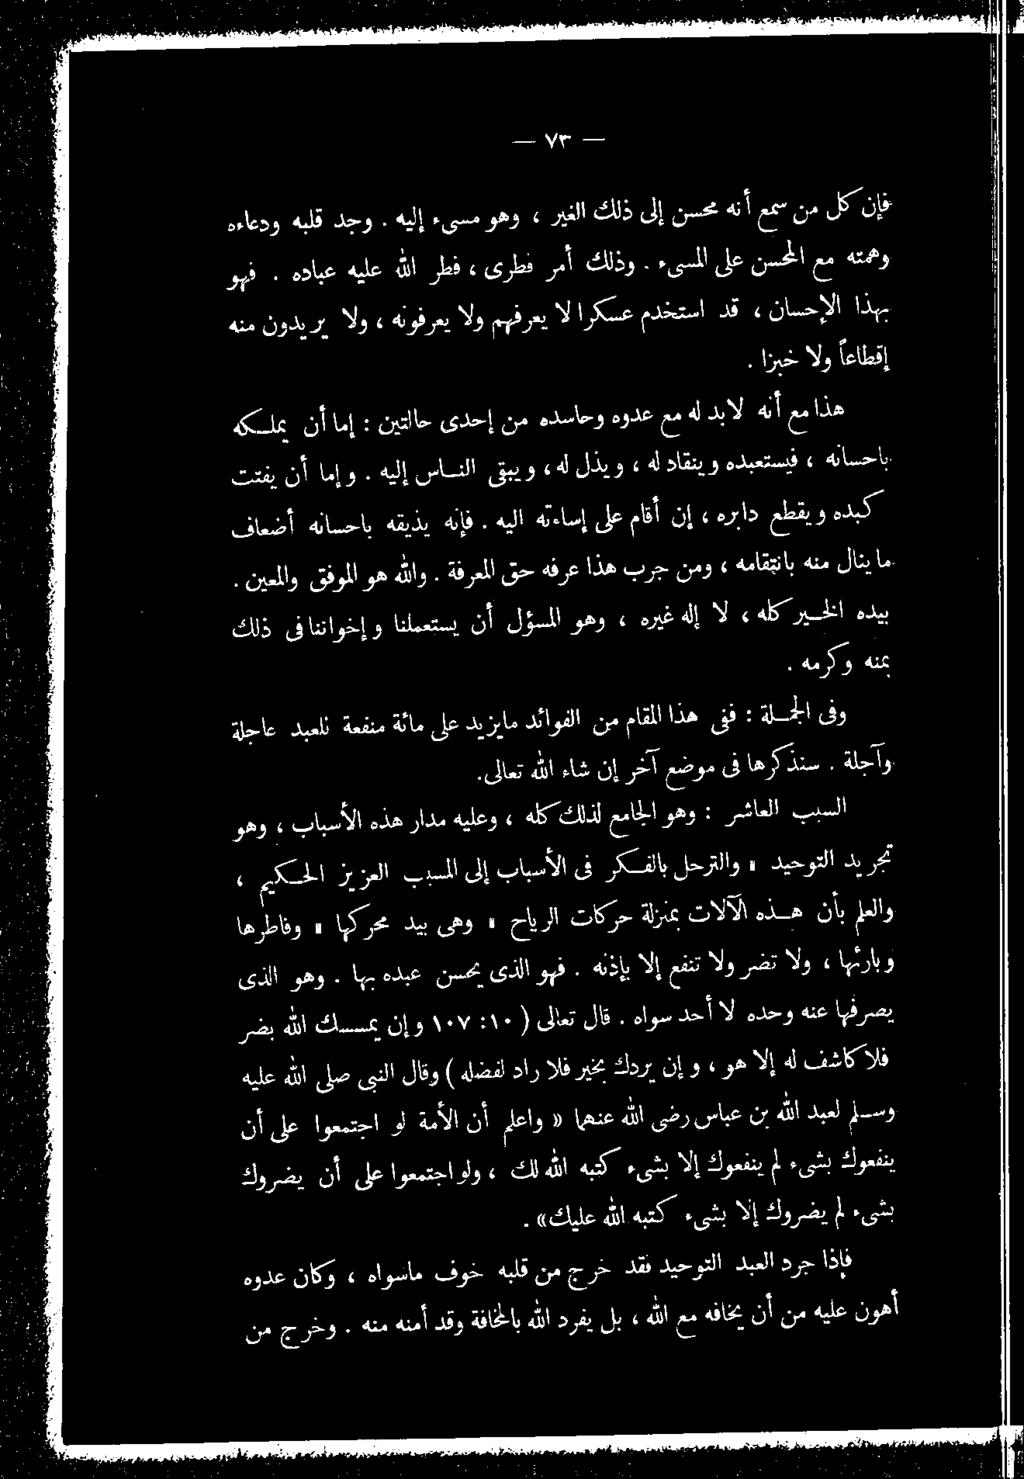 — ٧٣ —
فإن كل من سمع أنه محسن إلى ذلك الغير ، وهو مسىء إليه . وجد قلبه ودعاءه
وهمته مع المحسن على المسىء . وذلك أمر فطرى ، فطر الله عليه عباده . فهو
بهذا الإحسان ، قد استخدم عسكرا لا يعرفهم ولا يعرفونه ، ولا يريدون منه
إقطاعاً ولا خبزا .
هذا مع أنه لابد له مع عدوه وحاسده من إحدى حالتين : إما أن يملكه
باحسانه ، فيستعبده وينقاد له ، ويذل له ، ويبقى النـاس إليه . وإما أن يفتت
كبده ويقطع دابره ، إن أقام على إساءته اليه . فإنه يذيقه باحسانه أضعاف
ماينال منه بانتقامه ، ومن جرب هذا عرفه حق المعرفة . والله هو الموفق والمعين .
بيده الخـير كله ، لا إله غيره ، وهو المسؤل أن يستعملنا وإخواننا فى ذلك
بمنه وكرمه .
وفى الجمـلة : ففى هذا المقام من الفوائد مايزيد على مائة منفعة للعبد عاجلة
وآجلة . سنذكرها فى موضع آخر إن شاء الله تعالى .
السبب العاشر : وهو الجامع لذلك كله ، وعليه مدار هذه الأسباب ، وهو
تجريد التوحيد « والترحل بالفكر فى الأسباب إلى المسبب العزيز الحـكيم ،
والعلم بأن هـذه الآلات بمنزلة حركات الرياح « وهى بيد محركها « وفاطرها
وبارئها ، ولا تضر ولا تنفع إلا بإذنه . فهو الذى يحسن عبده بها . وهو الذى
يصرفها عنه وحده لا أحد سواه . قال تعالى ( ١٠ : ١٠٧ وإن يمسسك الله بضر
فلا كاشف له إلا هو ، وإن يردك بخير فلا راد لفضله ) وقال النبى صلى الله عليه
وسـلم لعبد الله بن عباس رضى الله عنهما « واعلم أن الأمة لو اجتمعوا على أن
ينفعوك بشىء لم ينفعوك إلا بشىء كتبه الله لك ، ولو اجتمعوا على أن يضروك
بشىء لم يضروك إلا بشىء كتبه الله عليك » .
فإذا جرد العبد التوحيد فقد خرج من قلبه خوف ماسواه ، وكان عدوه
أهون عليه من أن يخافه مع الله ، بل يفرد الله بالمخافة وقد أمنه منه . وخرج من